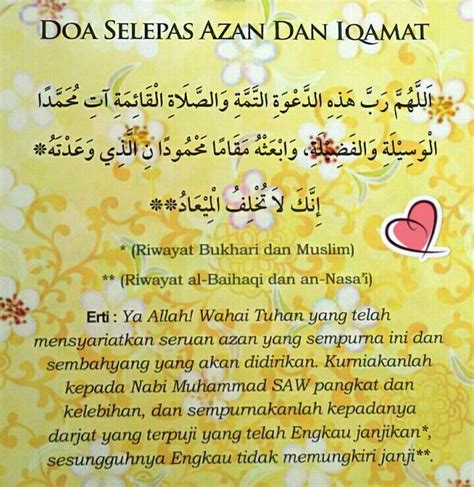 DOA SELEPAS AZAN DAN IQAMAT
اَللَّهُمَّ رَبَّ هَذِهِ الدَّعْوَةِ التَّمَّةِ وَالصَّلَاةِ الْقَائِمَةِ آتِ مُحَمَّدًا
الْوَسِيْلَةَ وَالْفَضِيْلَةَ، وَابْعَثْهُ مَقَامًا مَحْمُودًا نِ الَّذِي وَعَدْتَهُ*
إِنَّكَ لَا تُخْلِفُ الْمِيْعَادُ**
* (Riwayat Bukhari dan Muslim)
** (Riwayat al-Baihaqi dan an-Nasa'i)
Erti : Ya Allah! Wahai Tuhan yang telah
mensyariatkan seruan azan yang sempurna ini dan
sembahyang yang akan didirikan. Kurniakanlah
kepada Nabi Muhammad SAW pangkat dan
kelebihan, dan sempurnakanlah kepadanya
darjat yang terpuji yang telah Engkau janjikan*,
sesungguhnya Engkau tidak memungkiri janji**.